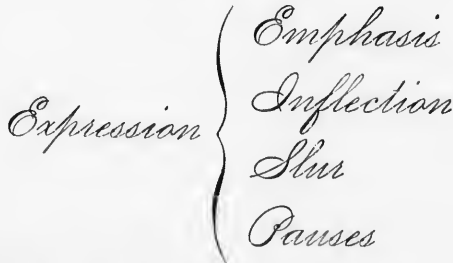 Expression
Emphasis
Inflection
Slur
Pauses